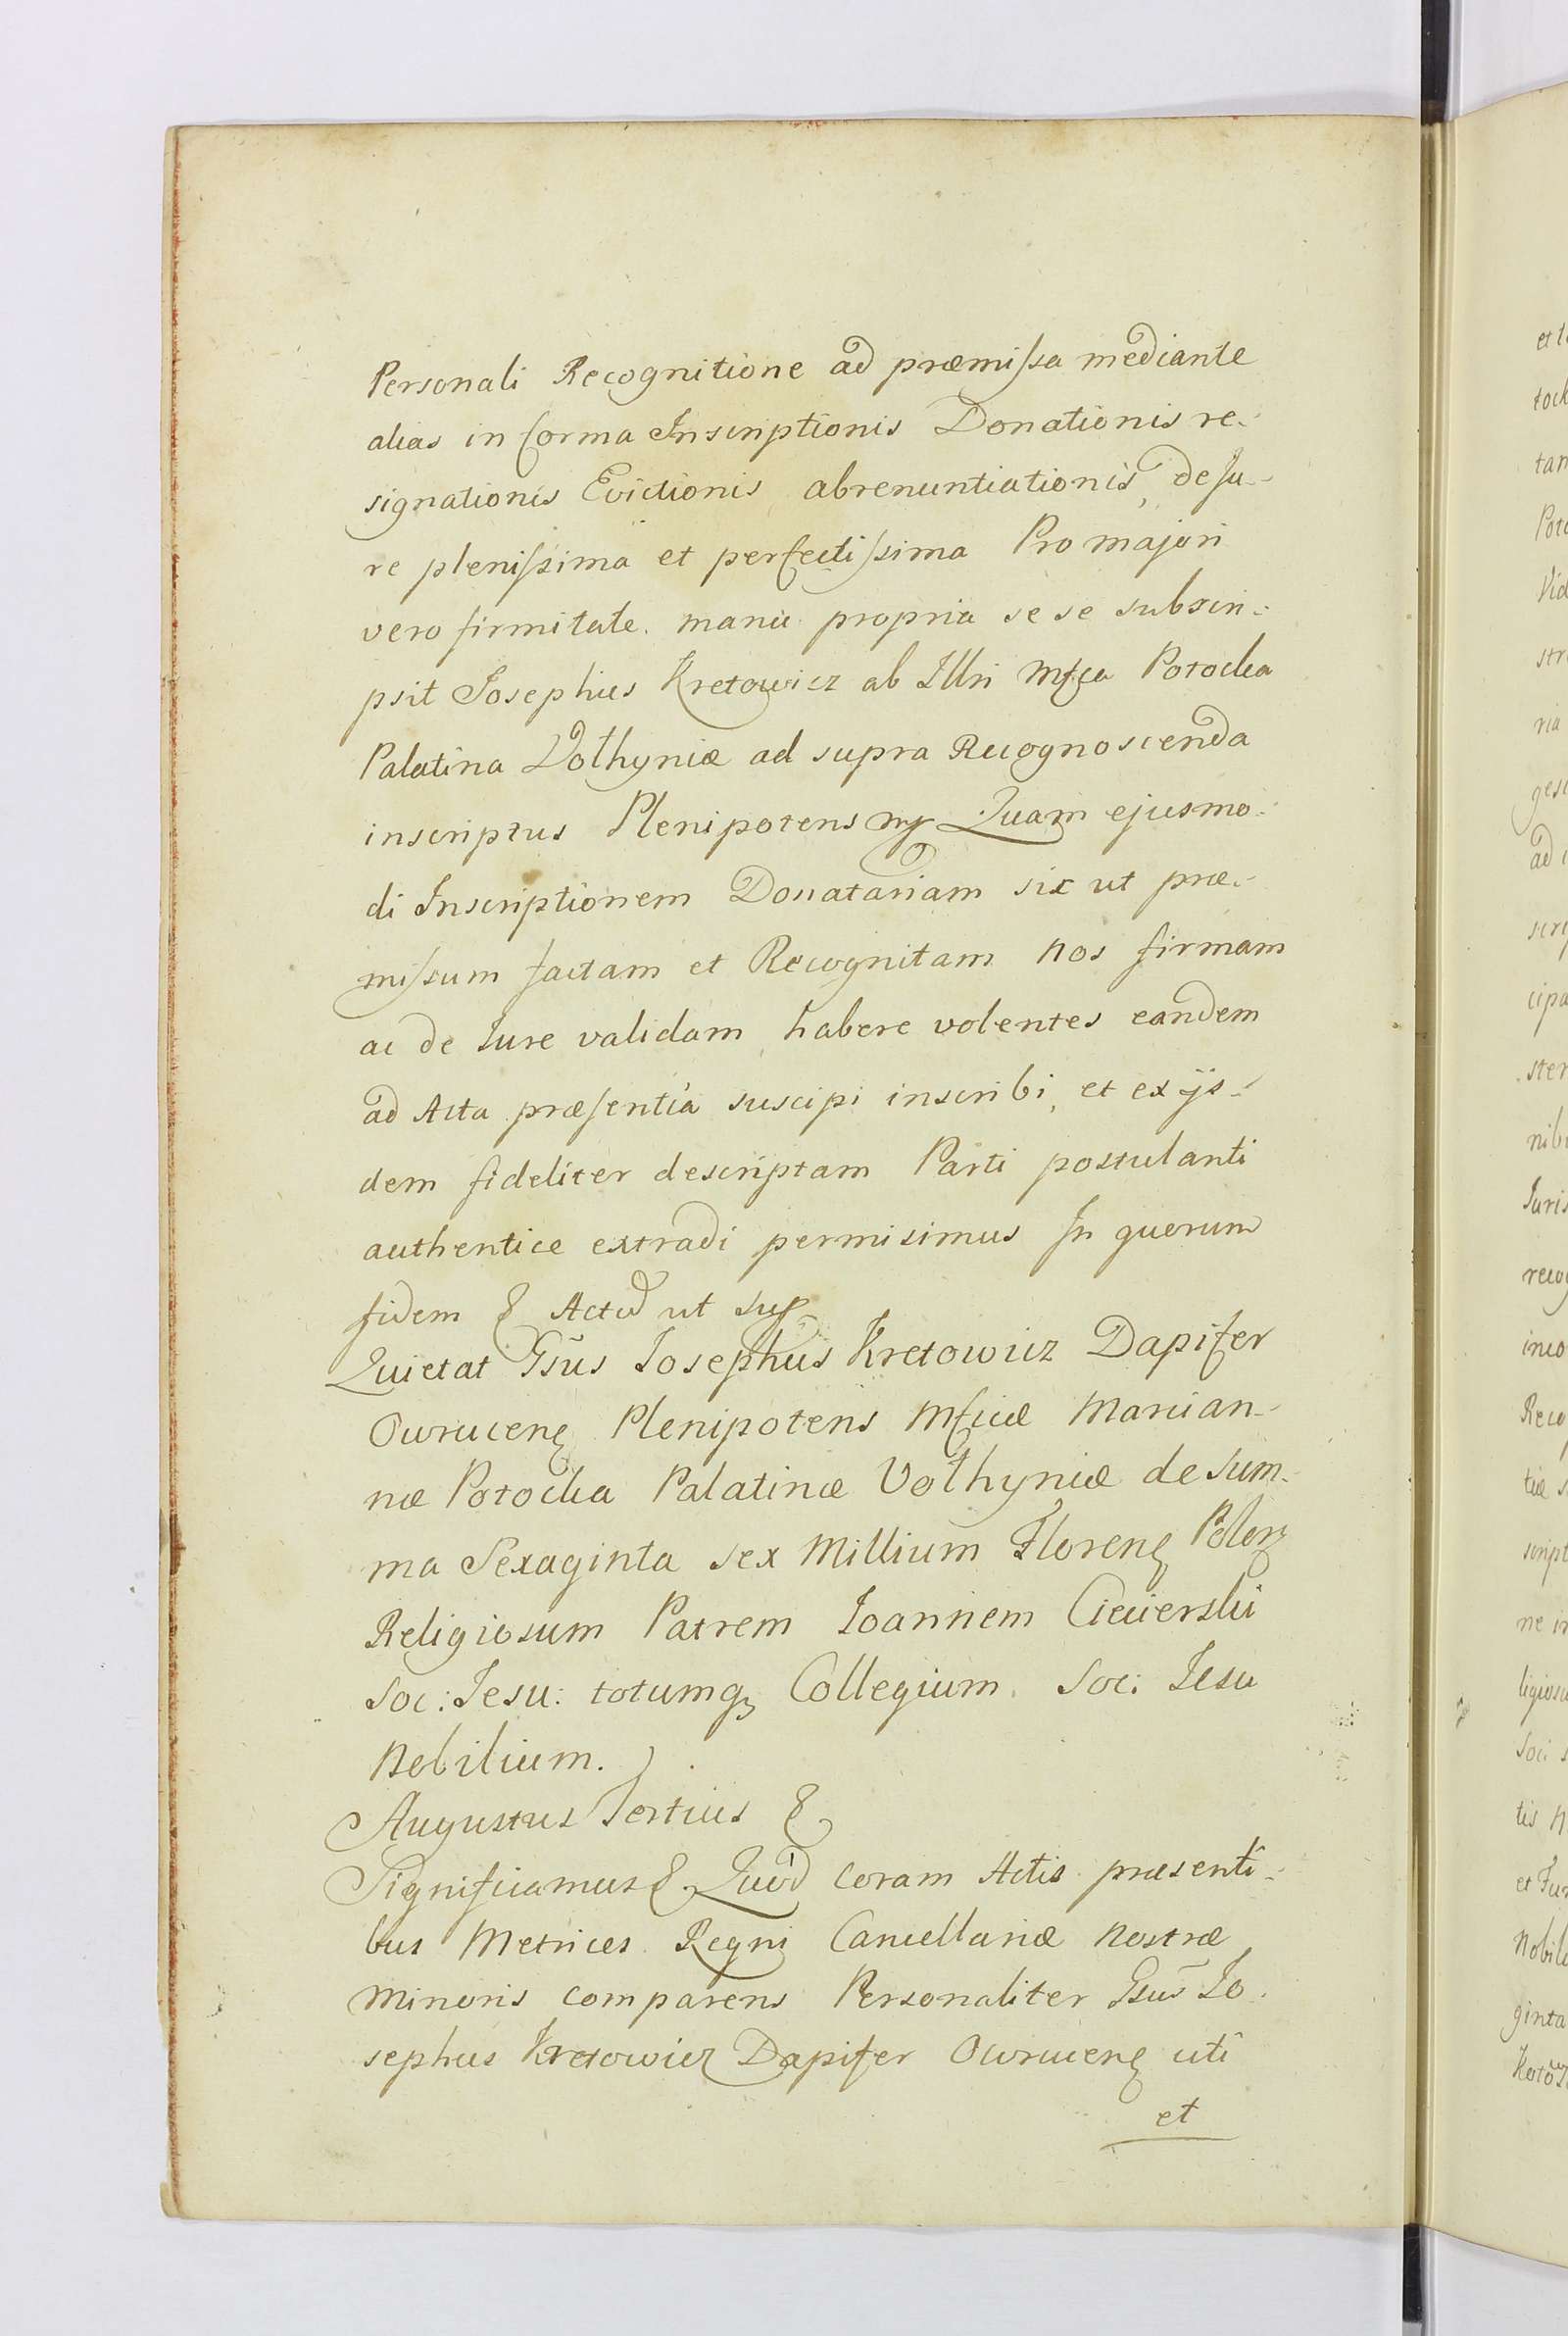 Personali Recognitione ad præmissa mediante
alias in forma Inscriptionis Donationis re-
signationis Evictionis, abrenuntiationis, de Iu-
re plenissima et perfectissima Pro majori
vero firmitate manu propria se se subscri-
psit Josephus Kretowicz ab Illri Mfca Potocka
Palatina Volhyniæ ad supra Recognoscenda
inscriptus Plenipotens mp Quam ejusmo-
di Inscriptionem Donatariam sic ut præ-
missum factam et Recognitam nos firmam
ac de Iure validam habere volentes eandem
ad Acta præsentia suscipi inscribi, et ex ijs-
dem fideliter descriptam Parti postulanti
authentice extradi permisimus In quorum
fidem & Actū ut sup
Quietat Gsūs Iosephus Kretowicz Dapifer
Owrucen Plenipotens Mficæ Marian-
næ Potocka Palatinæ Volhyniæ de Sum-
ma Sexaginta sex Millium Floren Polon
Religiosum Patrem Ioannem Ciecierski
Soc: Iesu: totumq Collegium Soc: Iesu
Nobilium.
Augustus Tertius &
Significamus & Quod coram Actis præsenti-
bus Metrices Regni Cancellariæ Nostræ
Minoris comparens Personaliter Gsūs Io-
sephus Kretowicz Dapifer Owrucen uti
et
et
tock
tan
Poto
Vid
str
ria
gesc
ad
scrip
cipa
ster
nibu
Iuris
recog
inco
Reco
tiæ s
script
ne in
ligiosu
Soci
tis N
et Fun
Nobile
ginta